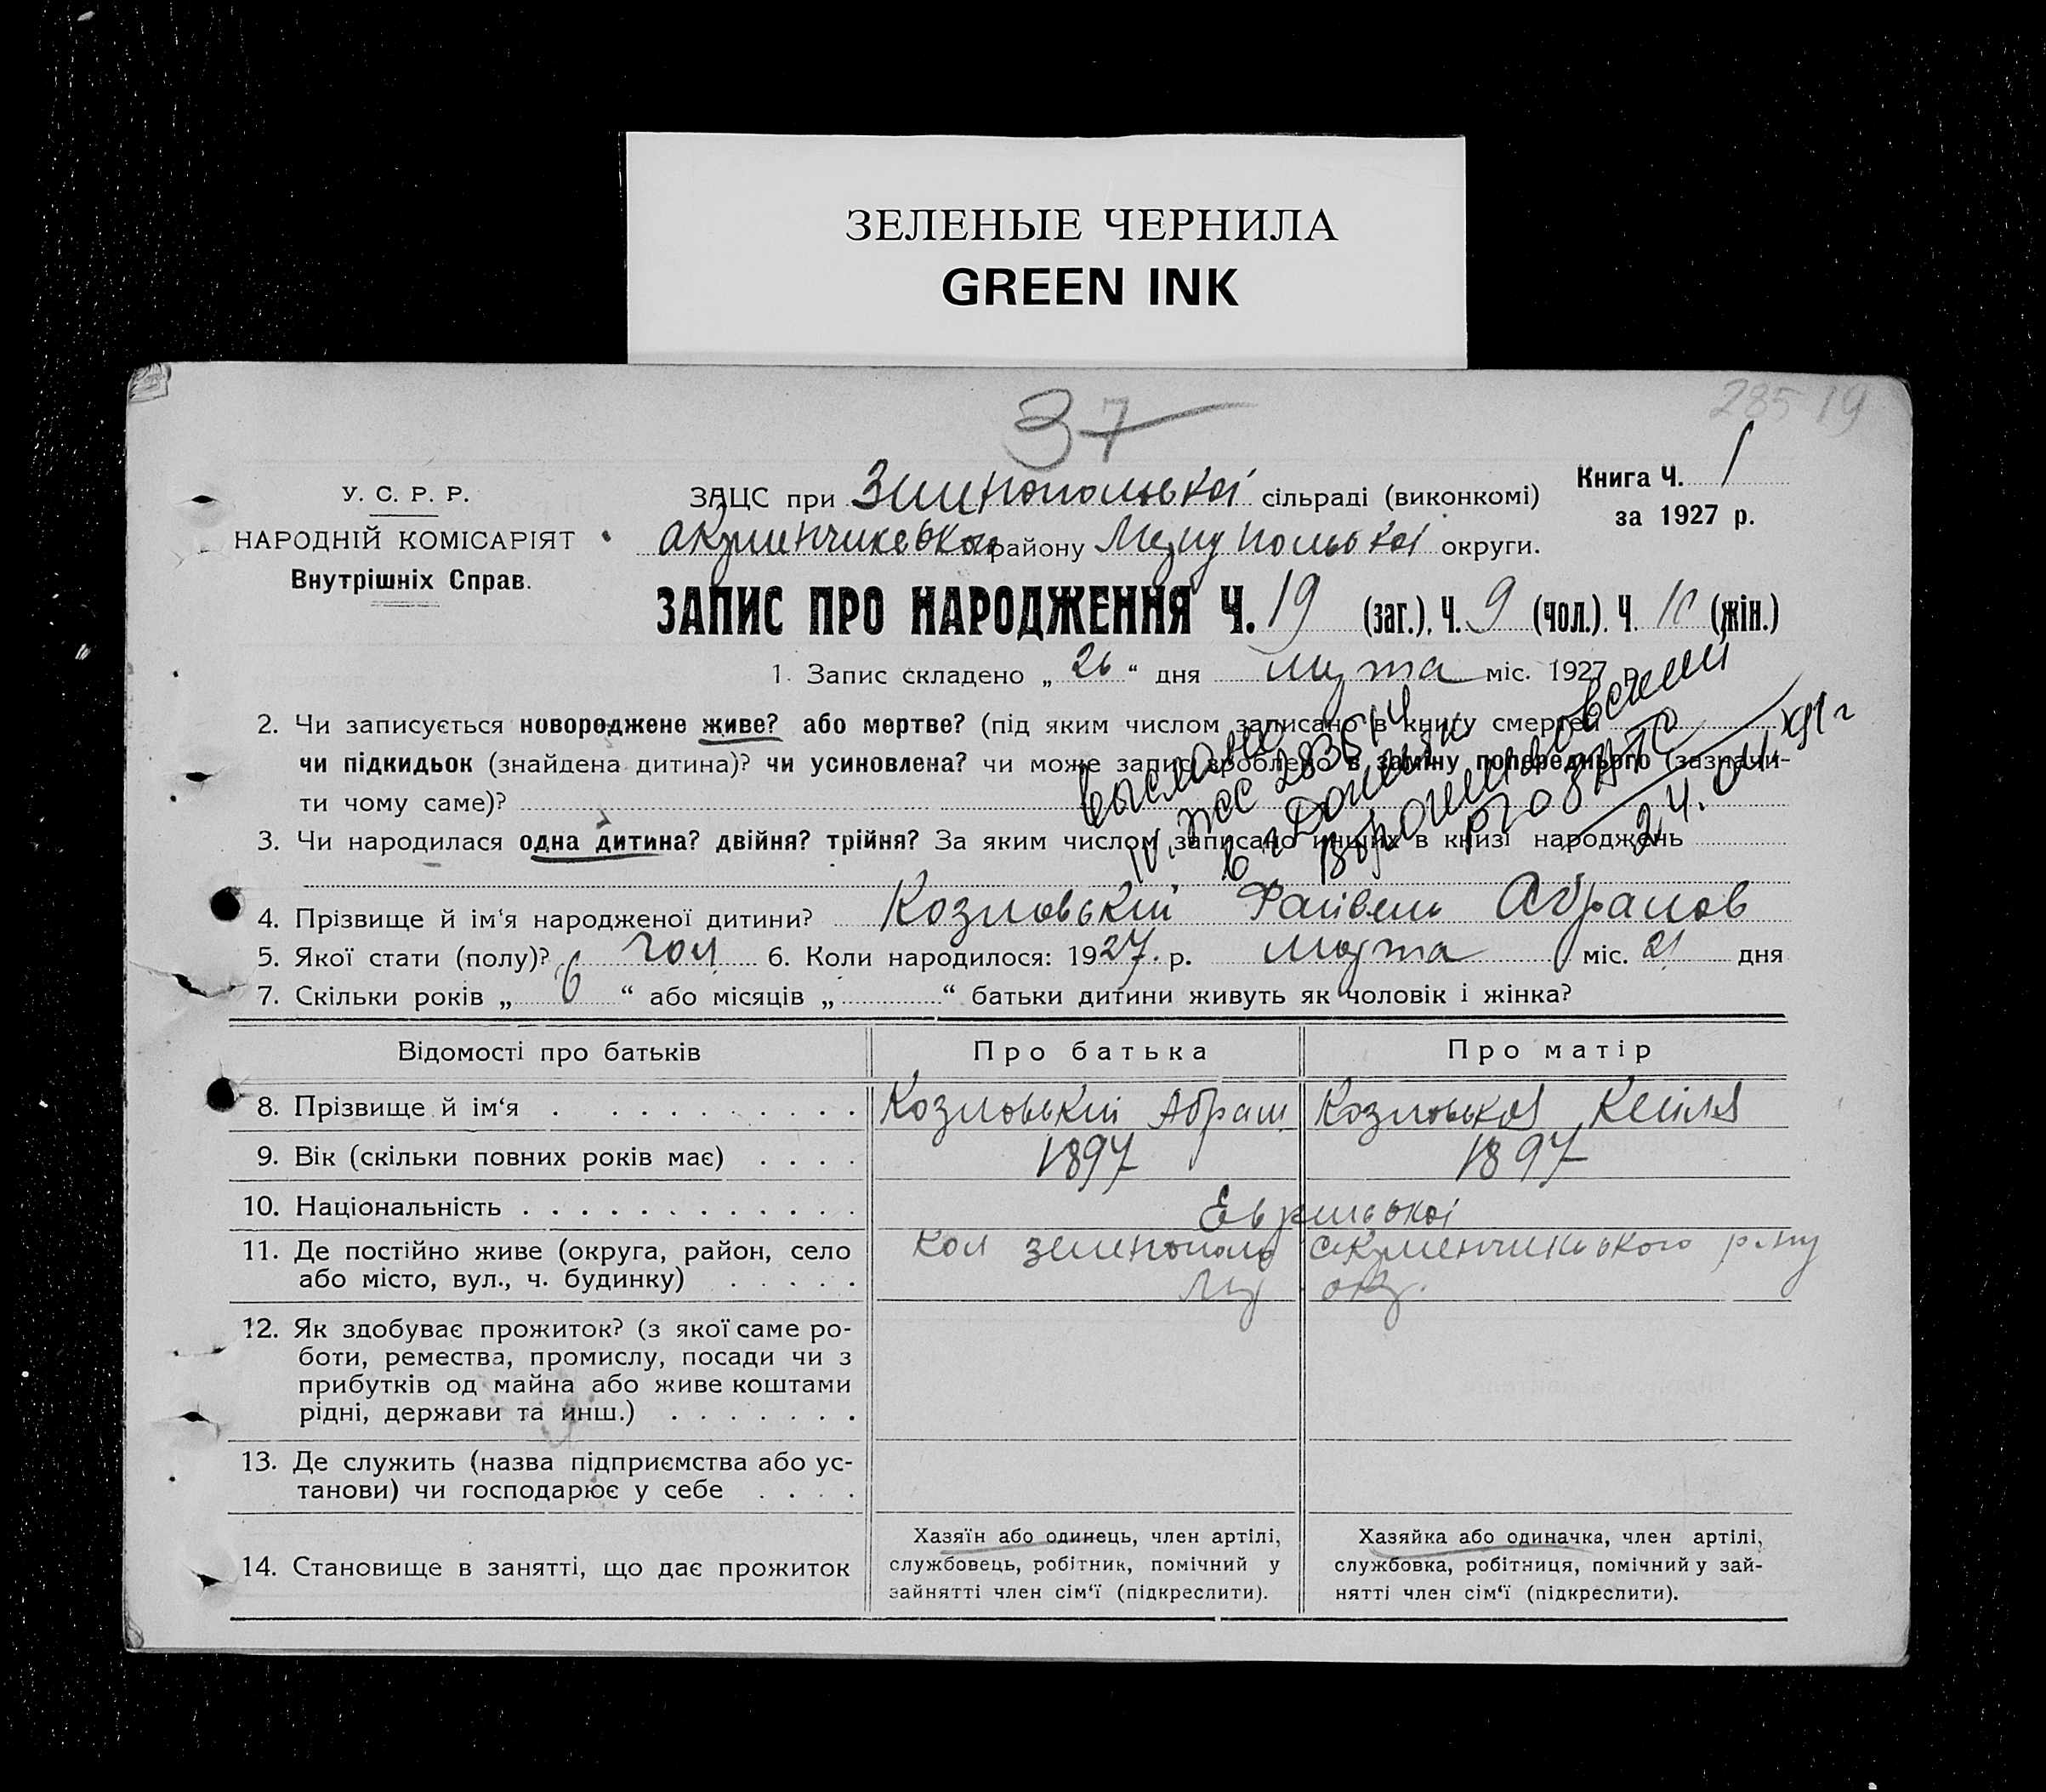 ЗЕЛЕНЫЕ ЧЕРНИЛА
GREEN INK
37
285 19
У. С. Р. Р.
НАРОДНІЙ КОМІСАРІЯТ
Внутрішніх Справ.
ЗАЦС при Зеленопольської сільраді (виконкомі)
району Маріупольської округи.
Книга Ч. 1
за 1927 р.
ЗАПИС ПРО НАРОДЖЕННЯ Ч. 19 (заг.). Ч. 9 (чол.). Ч. 10 (жін.)
1. Запис складено „ 26 “ дня марта міс. 1927 р.
2. Чи записується новороджене живе? або мертве? (під яким числом записано в книгу смертей
чи підкидьок (знайдена дитина)? чи усиновлена? чи може запис зроблено в заміну попереднього (зазначи-
ти чому саме)?
Выслано
283514
в г Донецк
Ворошиловский
р по ЗАГС
24. 04. 91 г
3. Чи народилася одна дитина? двійня? трійня? За яким числом записано инших в книзі народжень
4. Прізвище й ім‘я народженої дитини? Козловський Файвель Абрамов
5. Якої стати (полу)? чол 6. Коли народилося: 1927. р. марта міс. 21 дня
7. Скільки років „ 6 “ або місяців „ “ батьки дитини живуть як чоловік і жінка?
Відомості про батьків Про батька Про матір
8. Прізвище й ім‘я Козловський Абрам Козловська Кейля
9. Вік (скільки повних років має) 1897 1897
10. Національність Еврейської
11. Де постійно живе (округа, район, село кол Зеленополь р-ну
або місто, вул., ч. будинку) окр.
12. Як здобуває прожиток? (з якої саме ро-
боти, ремества, промислу, посади чи з
прибутків од майна або живе коштами
рідні, держави та инш.)
13. Де служить (назва підприємства або ус-
танови) чи господарює у себе
14. Становище в занятті, що дає прожиток
Хазяїн або одинець, член артілі,
службовець, робітник, помічний у
зайнятті член сім‘ї (підкреслити).
Хазяйка або одиначка, член артілі,
службовка, робітниця, помічний у зай-
нятті член сім‘ї (підкреслити).